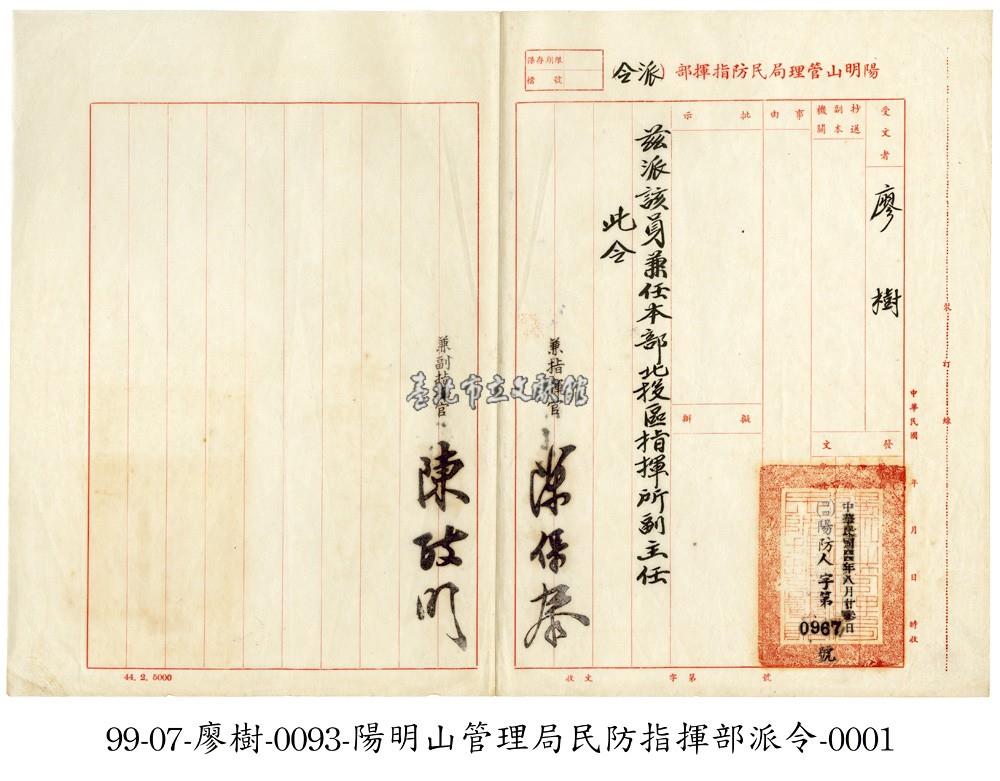 陽明山管理局民防指揮部（派令）
保存期限
檔號
受文者
廖樹
抄送副本機關
事由
批示
擬辦
發文
中華民國四四年八月廿 日
陽防人字第0967號
茲派該員兼任本部北投區指揮所副主任
此令
兼指揮官
兼副指 官
陳
裝訂線
中華民國 年 月 日 時收
收文 字第 號
44. 2. 5000
臺北市立文獻館
99-07-廖樹-0093-陽明山管理局民防指揮部派令-0001